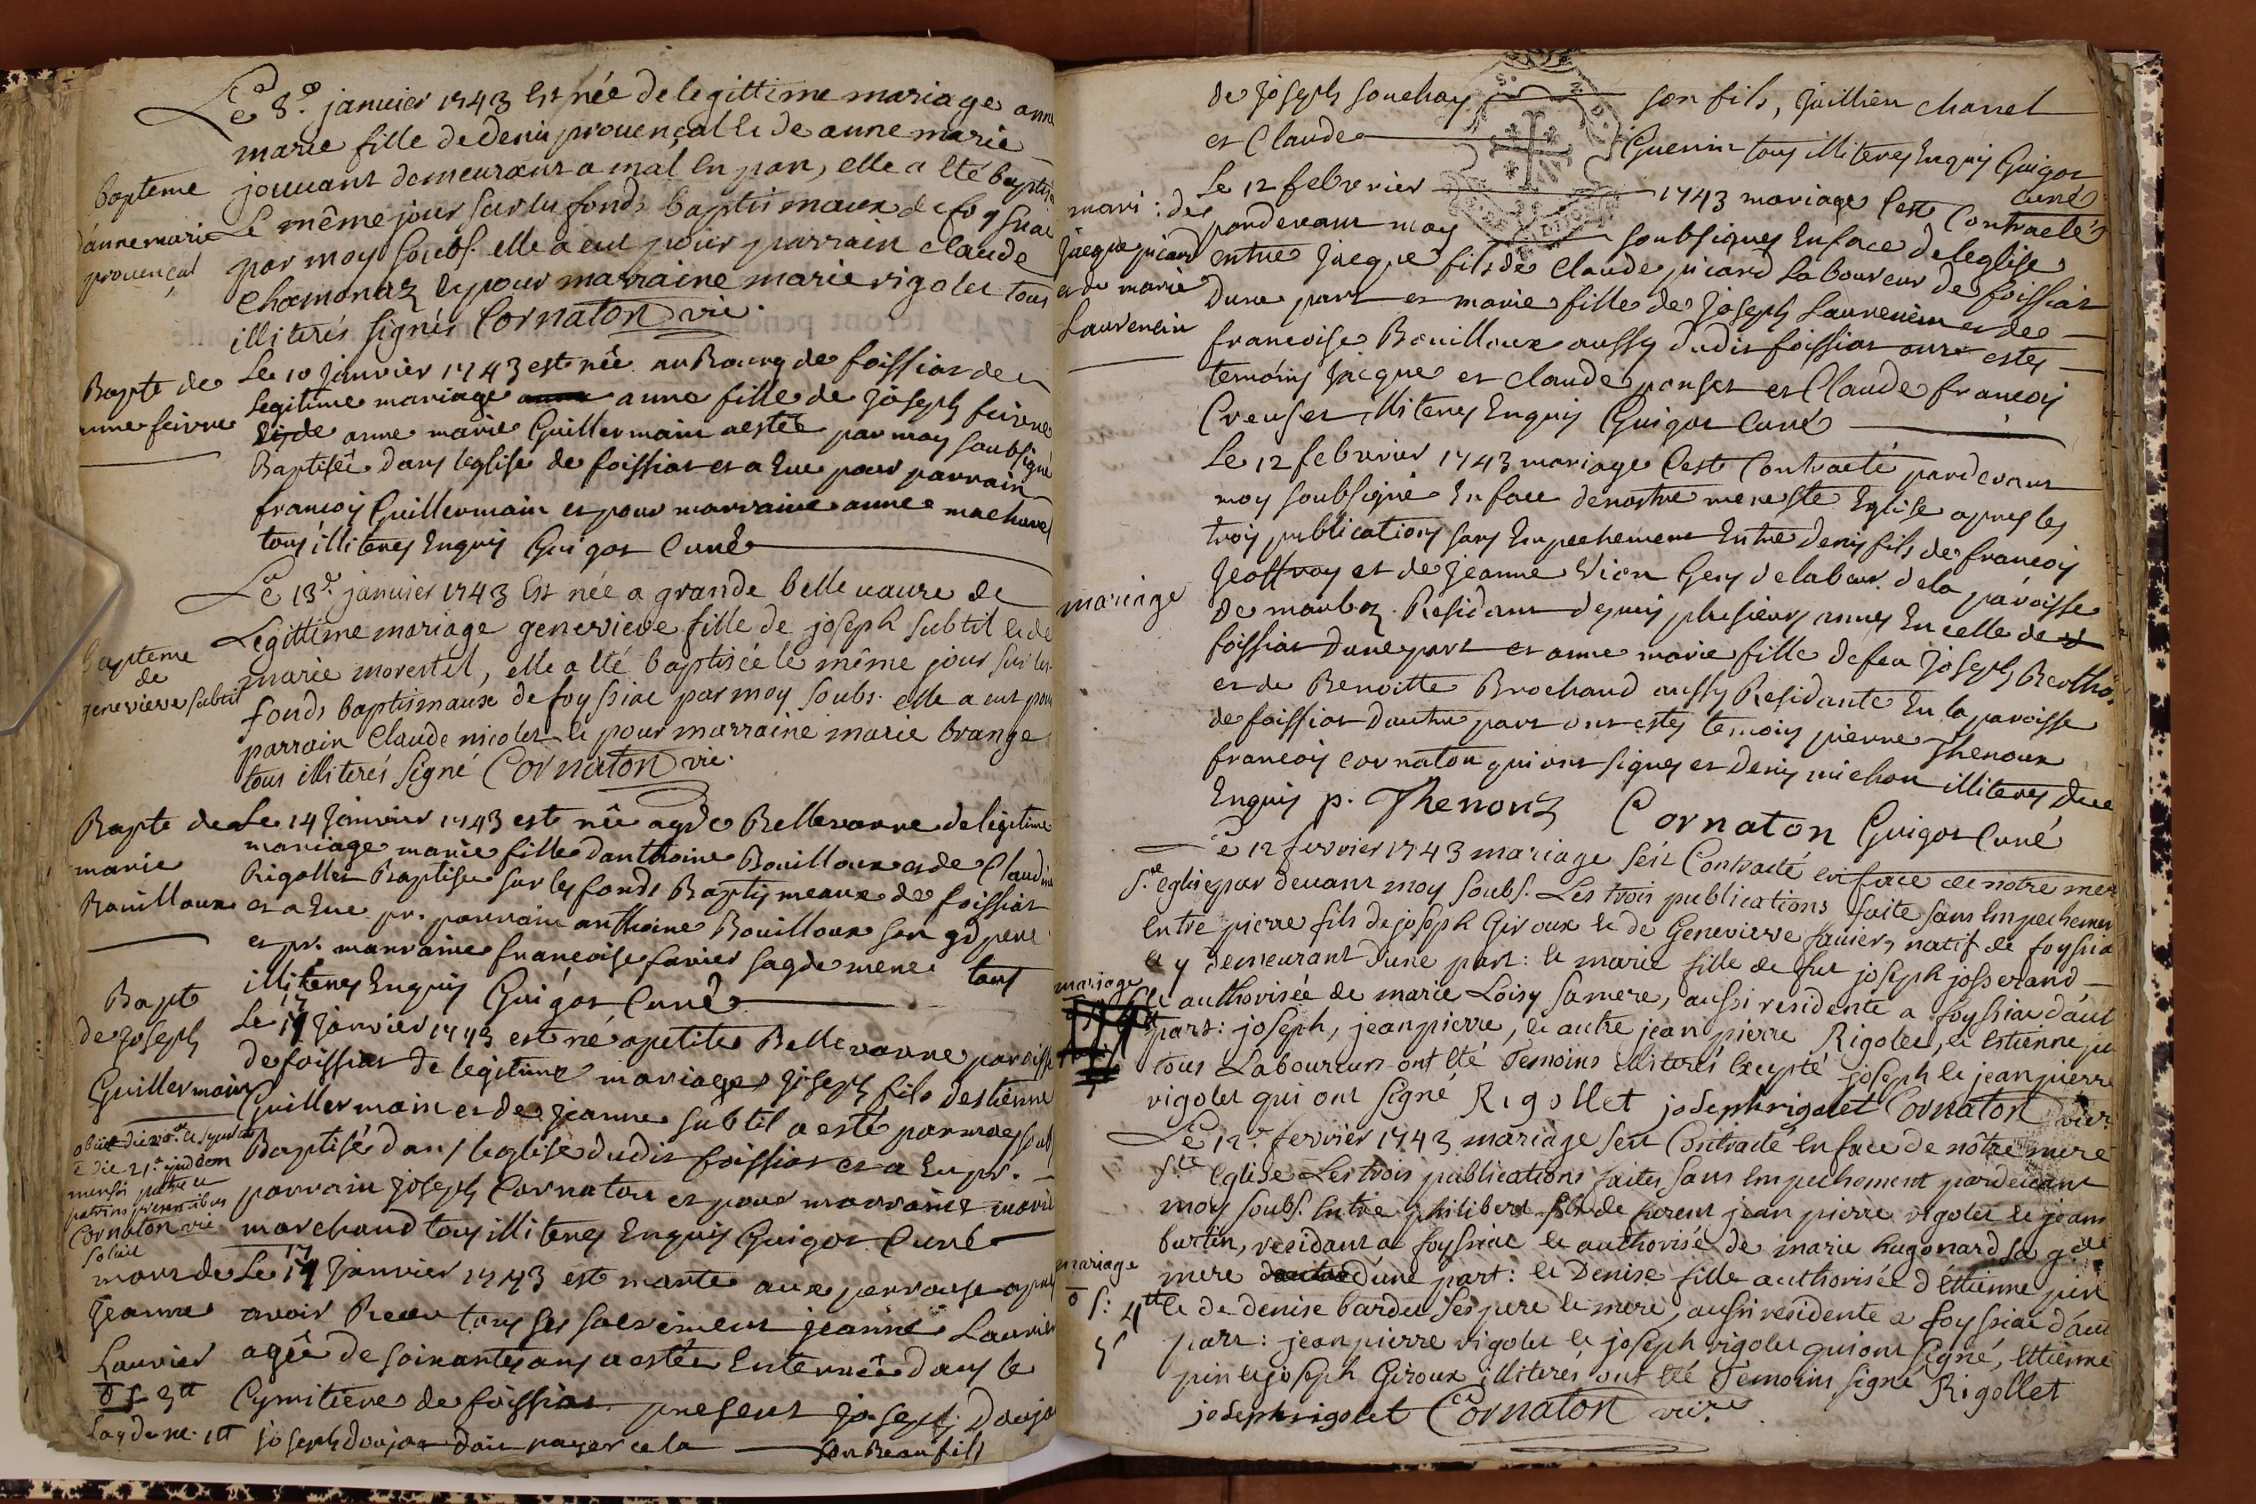 Le 8e janvier 1743 est née de legittime mariage anne
marie fille de denis provençal et de anne marie
jouvant demeurant a mal en pan, elle a eté baptisé
Le même jour sur les fonds baptismaux de foyssiac
par moy soubs. elle a eut pour parrain claude
Chamonaz et pour marraine marie rigolet tous
illiterés signés Cornaton vic.
Bapteme
d'anne marie
provençal
Le 10 janvier 1743 est née au Bourg de foissiat de
Legitime mariage anne fille de joseph feivre
et de anne marie Guillermain a esté par moy soubsigné
Baptisée dans leglise de foissiat et a Eue pour parrain
francois Guillermain et pour marraine anne machurel
tous illiteres Enquis Guigot Curé
Bapte de
anne feivre
Le 13e janvier 1743 est née a grande belle vavre de
Legittime mariage genevieve fille de joseph subtil et de
marie morestel, elle a eté baptisée le même jour sur les
fonds baptismaux de foyssiac par moy soubs. elle a eut pour
parrain Claude nicolet et pour marraine marie brange
tous illiterés signé Cornaton vic.
Bapteme
de
genevieve subtil
Le 14 janvier 1743 est née a gde Bellevavre de legitime
mariage marie fille danthoine Bouilloux et de Claudine
Rigollet Baptisee sur les fonds Baptismeaux de foissiat
et a Eue pr. parrain anthoine Bouilloux son gd pere
et pr. marraine francoise favier sa gde mere tous
illiteres Enquis Guigot Curé
Bapte de
marie
Bouilloux
Le 17 janvier 1743 est né a petite Bellevavre paroisse
de foissiat de legitime mariage joseph fils destienne
Guillermain et de jeanne subtil a esté par moy soub
Baptisé dans leglise dudit foissiat et a Eu pr.
parrain joseph Cornaton et pour marraine marie
marchand tous illiteres Enquis Guigot Curé
Bapte
de joseph
Guillermain
Cornaton vic
Le 17 janvier 1743 est morte aux perrouse apres
avoir Receu tous ses sacremens jeanne Lauvier
agée de soixante ans a estée Enterrée dans le
Cymitiere de foissiat present joseph Doujat
joseph doujat doit payer cela son Beau fils
mort de
jeanne
Lauvier
de joseph souchay son fils, juillien chanel
et Claude Guerin tous illiteres Enquis Guigot
Curé
Le 12 febvrier 1743 mariage sest Contracté
pardevant moy soubsigné En face de leglise
entre jacque fils de Claude picard Laboureur de foissiat
Dune part et marie fille de joseph Laurencin et de
francoise Bouilloux aussy dudit foissiat ont estes
temoins jacque et claude ponset et Claude francois
Creuset illiteres Enquis Guigot Curé
mari: de
jacque picard
et de marie
Laurencin
Le 12 febvrier 1743 mariage sest Contracté pardevant
moy soubsigné En face de nostre mere ste Eglise apres les
trois publications sans Empechement Entre denis fils de francois
jeoffray et de jeanne Vion Gens de labeur de la paroisse
de marboz Residant depuis plusieurs annes En celle de
foissiat Dune part et anne marie fille de feu joseph Bertho
et de Benoitte Brochand aussy Residante En la paroisse
de foissiat Dautre part ont estes temoins pierre Thenoux
francois cornaton qui ont signes et denis michon illiteres Due
Enquis p. Thenoux Cornaton Guigot Curé
mariage
Le 12 fevrier 1743 mariage s'est Contracté en face de notre mere
ste eglise par devant moy soubs. Les trois publications faite sans Empechement
Entre pierre fils de joseph Giroux et de Genevieve favier, natif de foyssia
et y demeurant d'une part: et marie fille de fut joseph josserand
et authorisée de marie Loisy sa mere, aussi residente a foyssiac d'aut
part: joseph, jean pierre, et autre jean pierre Rigolet, et Estienne pin
tous Laboureurs ont eté Temoins illiterés Excepté joseph et jean pierre
rigolet qui ont signé Rigollet joseph rigolet Cornaton vic.
mariage
Le 12e fevrier 1743 mariage s'est Contracté en face de nôtre mere
ste eglise Les trois publications faites sans Empechement pardevant
moy soubs. Entre philibert fils de furent jean pierre rigolet et jeanne
burtin, residant a foyssiac et authorisé de marie hugonard sa gde
mere d'une part: et Denise fille authorisée d'Ettienne pin
et de denise bardet ses pere et mere, aussi residente a foyssiac d'aut
part: jean pierre rigolet et joseph rigolet qui ont signé, Ettienne
pin et joseph Giroux illiterés ont eté Temoins signé Rigollet
joseph rigolet Cornaton vic.
mariage